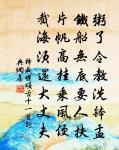 粥了令教洗鉢盂
鐵船無底要人扶
片帆高挂乘風便
截海須還大丈夫